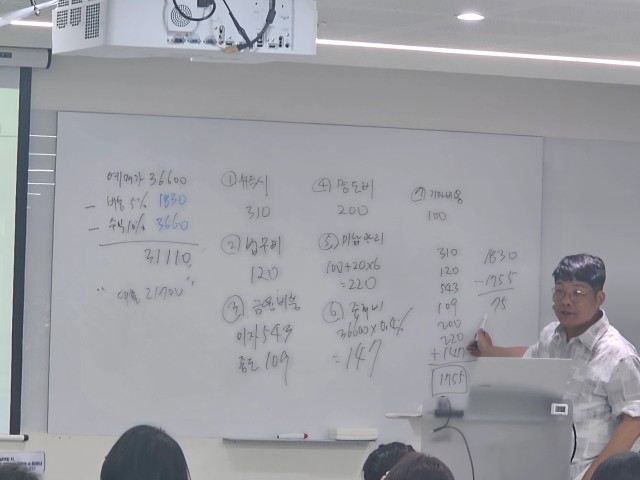 예매가 36600
- 비용 5% 1830
- 수익 10% 3660
31110
"대출 21700"
① 취득시
310
② 법무비
120
③ 금융비용
이자 543
중도 109
④ 명도비
200
⑤ 미납관리
100+20×6
=220
⑥ 중개비
36600×0.4%
=147
⑦ 기타비용
100
310
120
543
109
200
220
+147
1755
1830
-1755
75